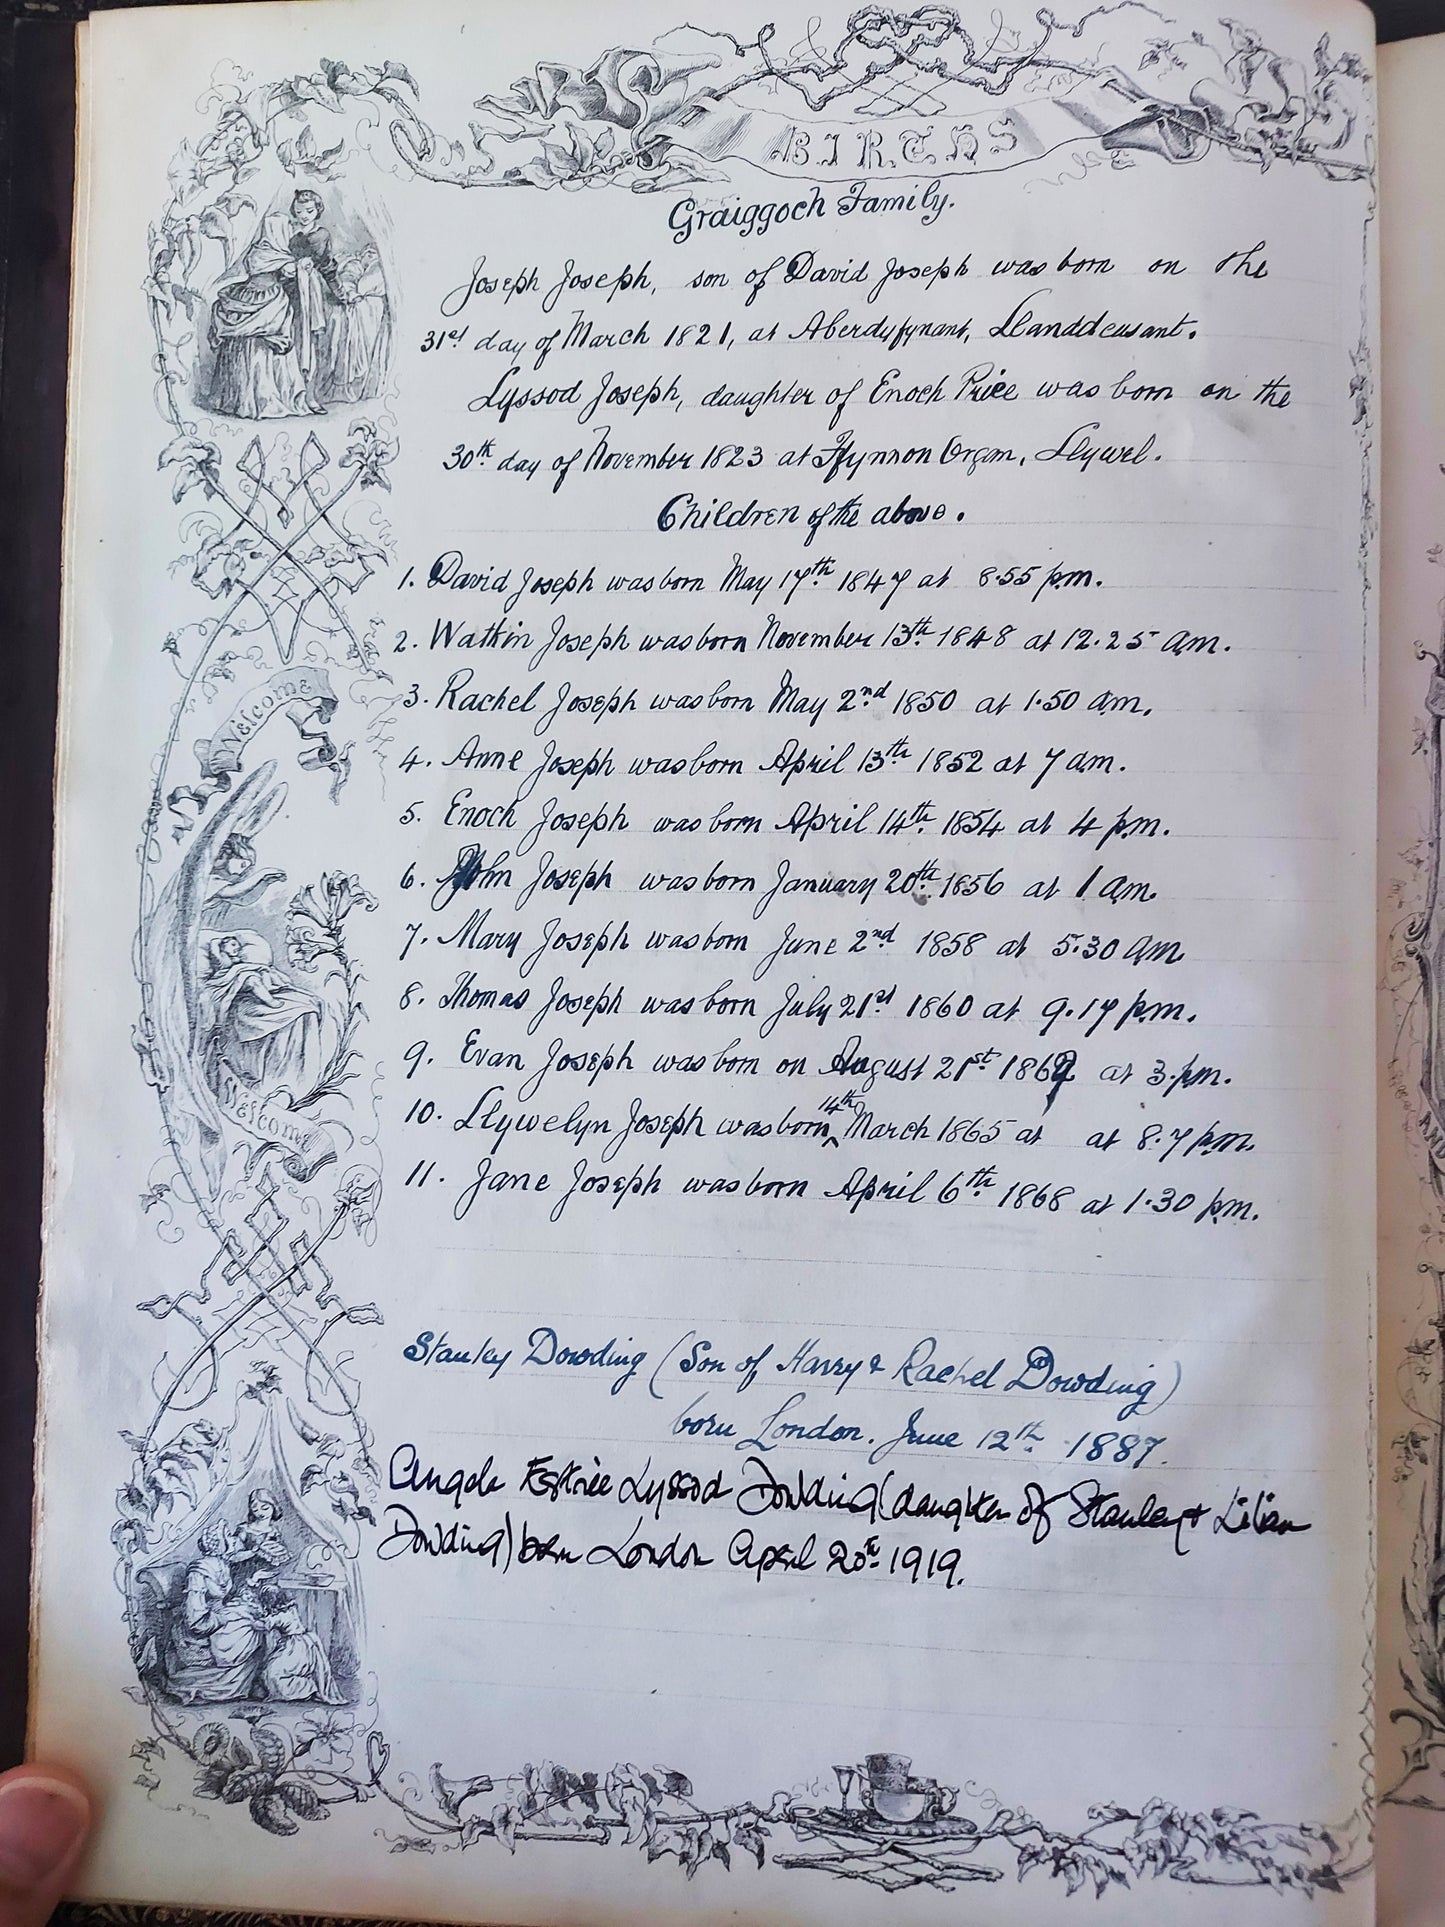 BIRTHS
Graiggoch Family.
Joseph Joseph, son of David Joseph was born on the
31st day of March 1821, at Aberdyfynant, Llanddeusant.
Lyssod Joseph, daughter of Enoch Price was born on the
30th day of November 1823 at Ffynnon Orgam, Llywel.
Children of the above.
1. David Joseph was born May 17th 1847 at 8.55 p.m.
2. Watkin Joseph was born November 13th 1848 at 12.25 a.m.
3. Rachel Joseph was born May 2nd 1850 at 1.50 a.m.
Welcome
4. Anne Joseph was born April 13th 1852 at 7 a.m.
5. Enoch Joseph was born April 14th 1854 at 4 p.m.
6. John Joseph was born January 20th 1856 at 1 a.m.
7. Mary Joseph was born June 2nd 1858 at 5.30 a.m.
8. Thomas Joseph was born July 21st 1860 at 9.17 p.m.
9. Evan Joseph was born on August 21st 1862 at 3.p.m.
Welcome
10. Llywelyn Joseph was born 14th March 1865 at at 8.7 p.m.
11. Jane Joseph was born April 6th 1868 at 1.30 p.m.
Stanley Dowding (Son of Harry & Rachel Dowding)
born London. June 12th 1887.
Angela Estrée Lyssod Dowding (daughter of Stanley + Lilian
Dowding) born London April 20th 1919.
AND